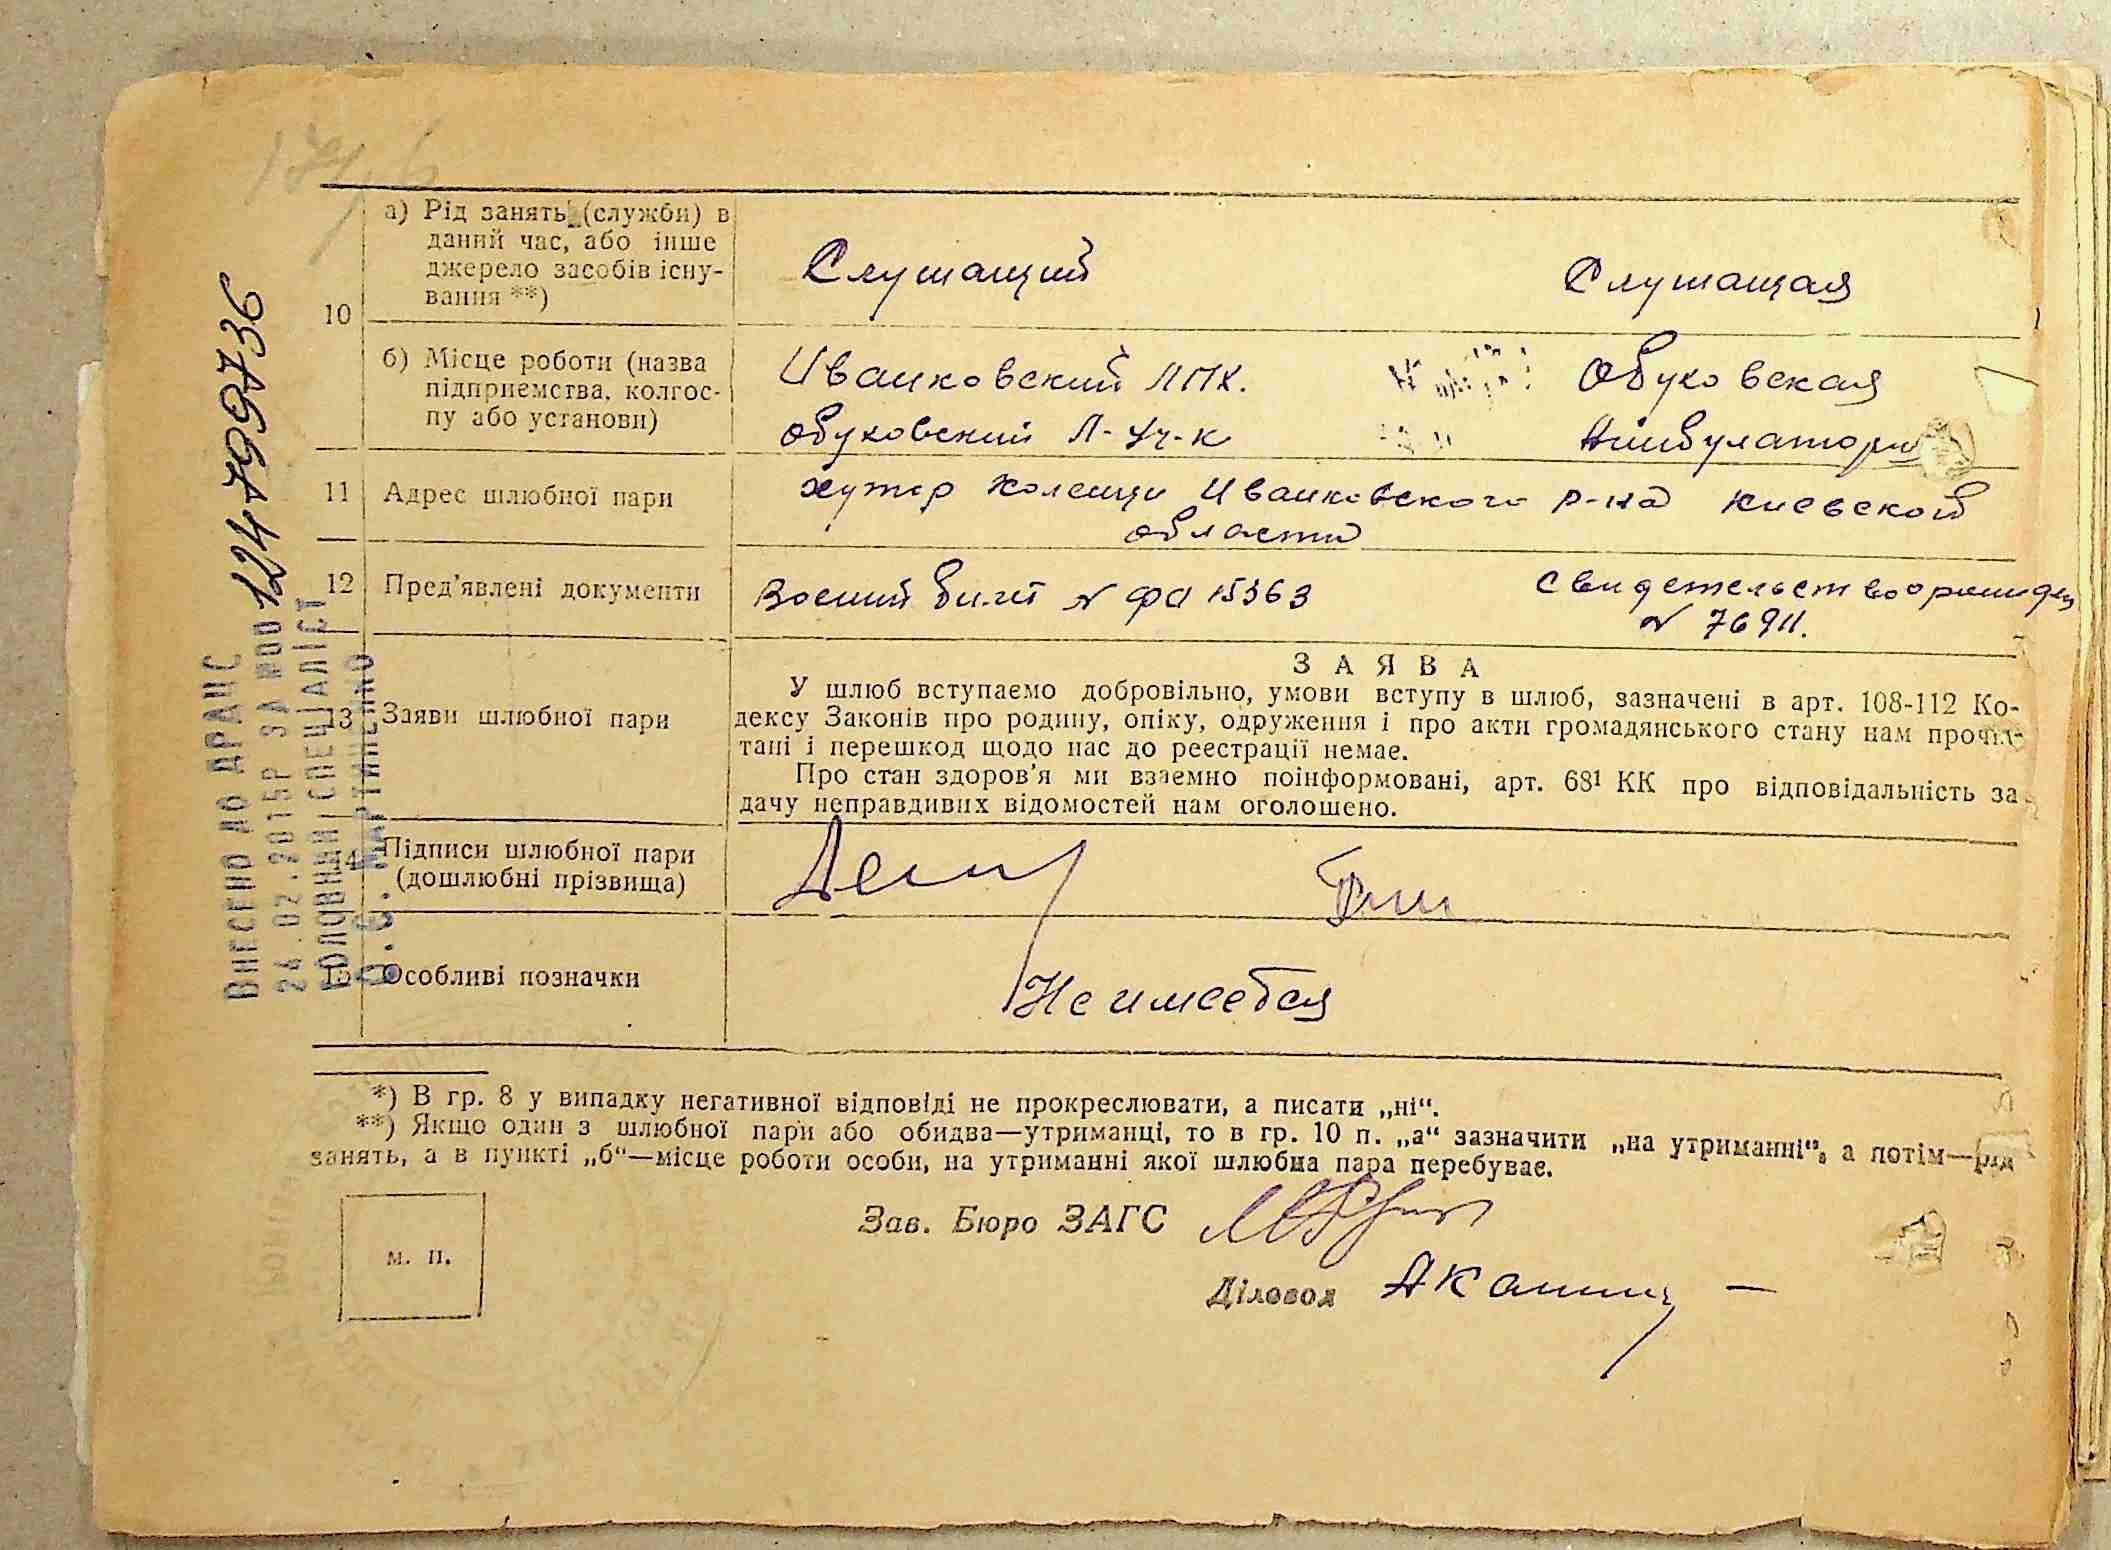 а) Рід занять (службн) в
даний час, або інше
джерело засобів існу-
вання **)
10
Слушащий
Слушащая
б) Місце роботи (назва
підприємства, колгос-
пу або установи)
Иванковский ЛПХ.
Обуховский Л-Уч-к
Обуховская
11 Адрес шлюбної пари
хутор Коленци Иванковского р-на Киевской
области
12 Пред'явлені документи
Воений билет № ФО 15363
Свидетельство о рожиден
№ 76911.
13 Заяви шлюбної пари
ЗАЯВА
У шлюб вступаємо добровільно, умови вступу в шлюб, зазначені в арт. 108-112 Ко-
дексу Законів про родину, опіку, одруження і про акти громадянського стану нам прочи-
тані і перешкод щодо нас до реєстрації немає.
Про стан здоров'я ми взаємно поінформовані, арт. 68¹ КК про відповідальність за
дачу неправдивих відомостей нам оголошено.
14 Підписи шлюбної пари
(дошлюбні прізвища)
15 Особливі позначки
Не имеется
*) В гр. 8 у випадку негативної відповіді не прокреслювати, а писати „ні“.
**) Якщо один з шлюбної пари або обидва—утриманці, то в гр. 10 п. „а“ зазначити „на утриманні“, а потім—рід
занять, а в пункті „б“—місце роботи особи, на утриманні якої шлюбна пара перебуває.
м. п.
Зав. Бюро ЗАГС
Діловод
ВНЕСЕНО ДО ДРАЦС
24.02.2015Р ЗА №00 124799736
ГОЛОВНИЙ СПЕЦІАЛІСТ
МАРТИНЕНКО